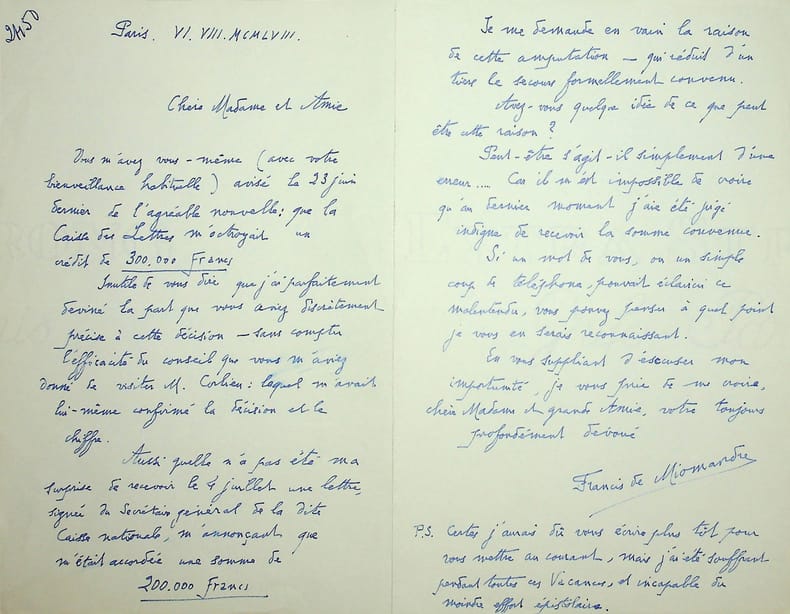 2450
Paris. VI. VIII. MCMLVIII.
Chère Madame et Amie
Vous m'avez vous-même (avec votre
bienveillance habituelle) avisé le 23 juin
dernier de l'agréable nouvelle: que la
Caisse des Lettres m'octroyait un
crédit de 300.000 Francs
Inutile de vous dire que j'ai parfaitement
deviné la part que vous aviez discrètement
précise à cette décision - sans compter
l'efficacité du conseil que vous m'aviez
donné de visiter M. : lequel m'avait
lui-même confirmé la décision et le
chiffre.
Aussi quelle n'a pas été ma
surprise de recevoir le 4 juillet une lettre,
signée du Secrétaire général de la dite
Caisse nationale, m'annonçant que
m'était accordée une somme de
200.000 Francs
Je me demande en vain la raison
de cette amputation - qui réduit d'un
tiers le secours formellement convenu.
Avez-vous quelque idée de ce que peut
être cette raison?
Peut-être s'agit-il simplement d'une
erreur.... Car il m'est impossible de croire
qu'au dernier moment j'aie été jugé
indigne de recevoir la somme convenue.
Si un mot de vous, ou un simple
coup de téléphone, pouvait éclaircir ce
malentendu, vous pouvez penser à quel point
je vous en serais reconnaissant.
En vous suppliant d'excuser mon
importunité, je vous prie de me croire,
chère Madame et grande Amie, votre toujours
profondément dévoué
Francis de Miomandre
P.S. Certes j'aurais dû vous écrire plus tôt pour
vous mettre au courant, mais j'ai été souffrant
pendant toutes ces Vacances, et incapable du
moindre effort épistolaire.